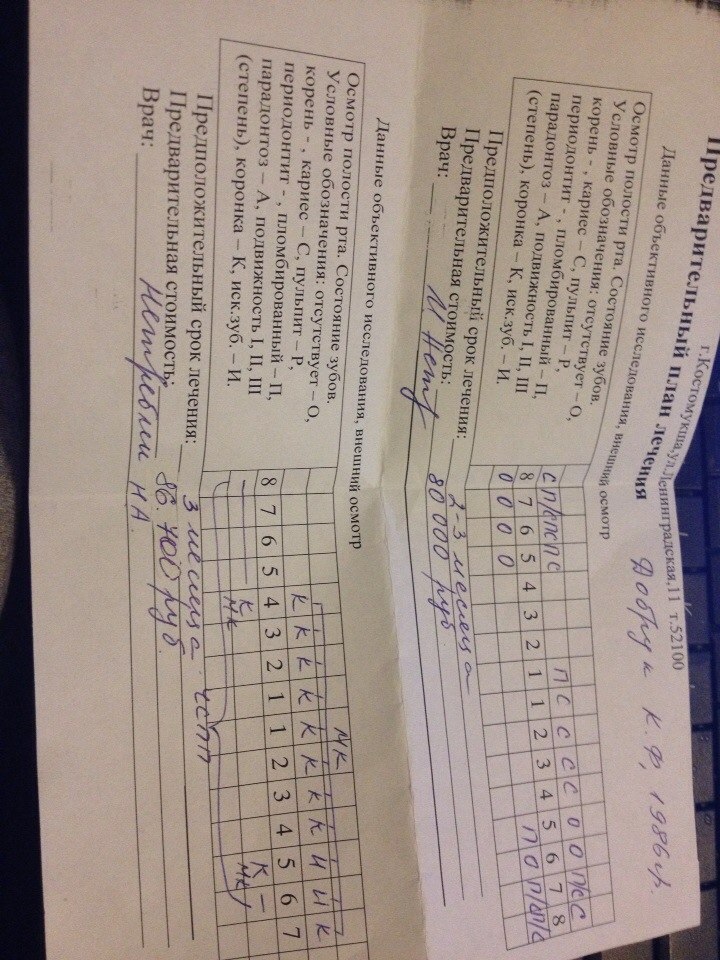 г.Костомукша,ул.Ленинградская,11 т.52100
Предварительный план лечения Добрук К.Ф, 1986гр.
Данные объективного исследования, внешний осмотр
Осмотр полости рта. Состояние зубов.
Условные обозначения: отсутствует – О,
корень - , кариес – С, пульпит – Р,
периодонтит - , пломбированный – П,
парадонтоз – А, подвижность I, II, III
(степень), коронка – К, иск.зуб. – И.
П С С С О О П/С
8 7 6 5 4 3 2 1 1 2 3 4 5 6 7 8
О О О О П О П/С
Предположительный срок лечения: 2-3 месяца
Предварительная стоимость: 80 000 руб.
Врач:
Данные объективного исследования, внешний осмотр
Осмотр полости рта. Состояние зубов.
Условные обозначения: отсутствует – О,
корень - , кариес – С, пульпит – Р,
периодонтит - , пломбированный – П,
парадонтоз – А, подвижность I, II, III
(степень), коронка – К, иск.зуб. – И.
МК
К К К К К К К К И И К
8 7 6 5 4 3 2 1 1 2 3 4 5 6 7
К К –
МК МК
Предположительный срок лечения: 3 месяца ЧСПП
Предварительная стоимость: 86.400 руб.
Врач: